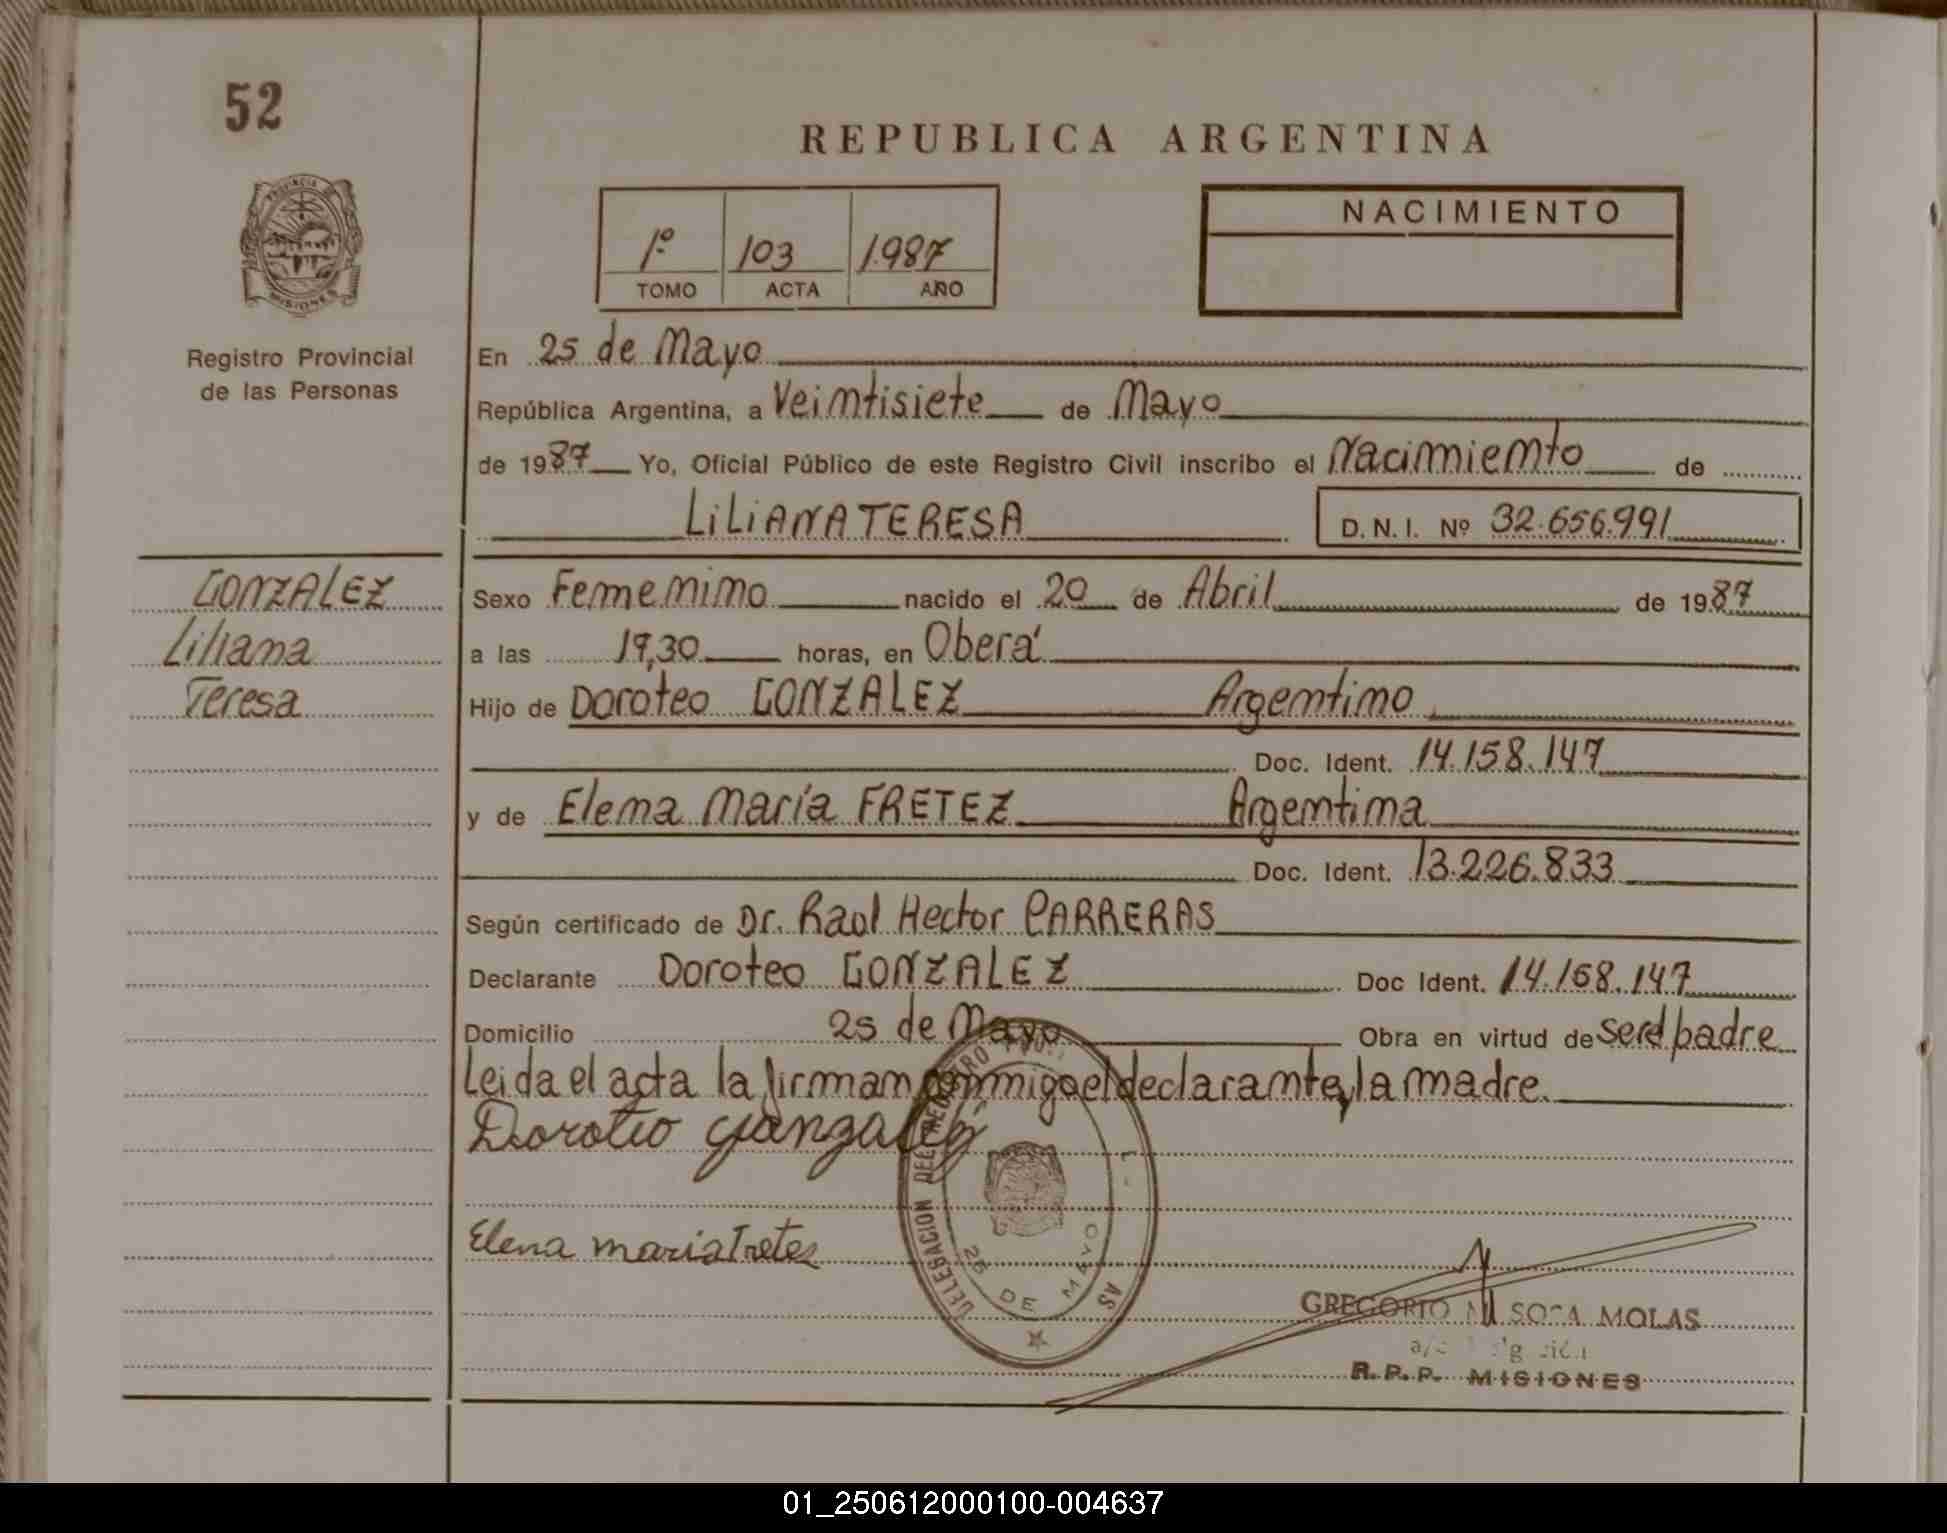 52
REPUBLICA ARGENTINA
PROVINCIA DE
MISIONES
Registro Provincial
de las Personas
1º 103 1.987
TOMO ACTA AÑO
NACIMIENTO
En 25 de Mayo
República Argentina, a Veintisiete de Mayo
de 1987 Yo, Oficial Público de este Registro Civil inscribo el Nacimiento de
LILIANA TERESA D. N. I. Nº 32.656.991
GONZALEZ
Liliana
Teresa
Sexo Femenino nacido el 20 de Abril de 1987
a las 19,30 horas, en Oberá
Hijo de Doroteo GONZALEZ Argentino
Doc. Ident. 14.158.147
y de Elena María FRETEZ Argentina
Doc. Ident. 13.226.833
Según certificado de Dr. Raul Hector CARRERAS
Declarante Doroteo GONZALEZ Doc Ident. 14.158.147
Domicilio 25 de Mayo Obra en virtud de ser el padre
Leida el acta la firman conmigo el declarante y la madre.
Doroteo Gonzalez
Elena maria Fretes
DELEGACION DEL REGISTRO
25 DE MAYO
GREGORIO SOSA MOLAS
R. P. P. MISIONES
01_250612000100-004637